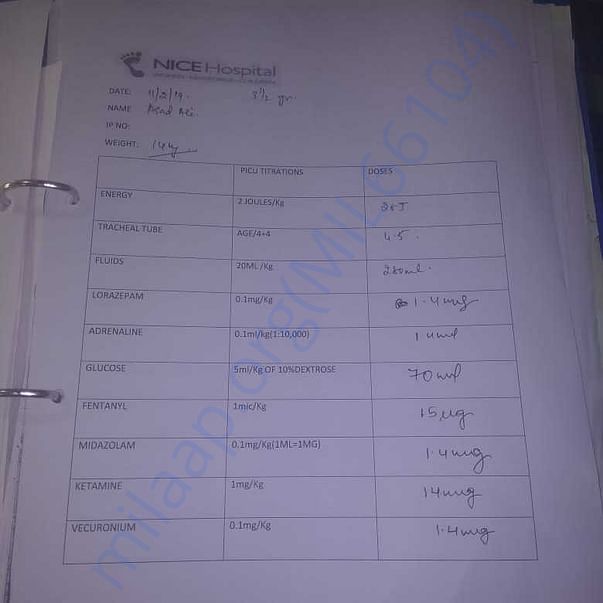 NICE Hospital
DATE: 11/2/19. 3½ yr
NAME Asad Ali.
IP NO:
WEIGHT: 14 kg
PICU TITRATIONS DOSES
ENERGY 2 JOULES/Kg 28J
TRACHEAL TUBE AGE/4+4 4.5.
FLUIDS 20ML/Kg 280ml.
LORAZEPAM 0.1mg/Kg 1.4mg
ADRENALINE 0.1ml/kg(1:10,000) 1.4ml
GLUCOSE 5ml/Kg OF 10%DEXTROSE 70ml
FENTANYL 1mic/Kg 15ug
MIDAZOLAM 0.1mg/Kg(1ML=1MG) 1.4mg
KETAMINE 1mg/Kg 14mg
VECURONIUM 0.1mg/Kg 1.4mg
milaap.org(MIL66104)